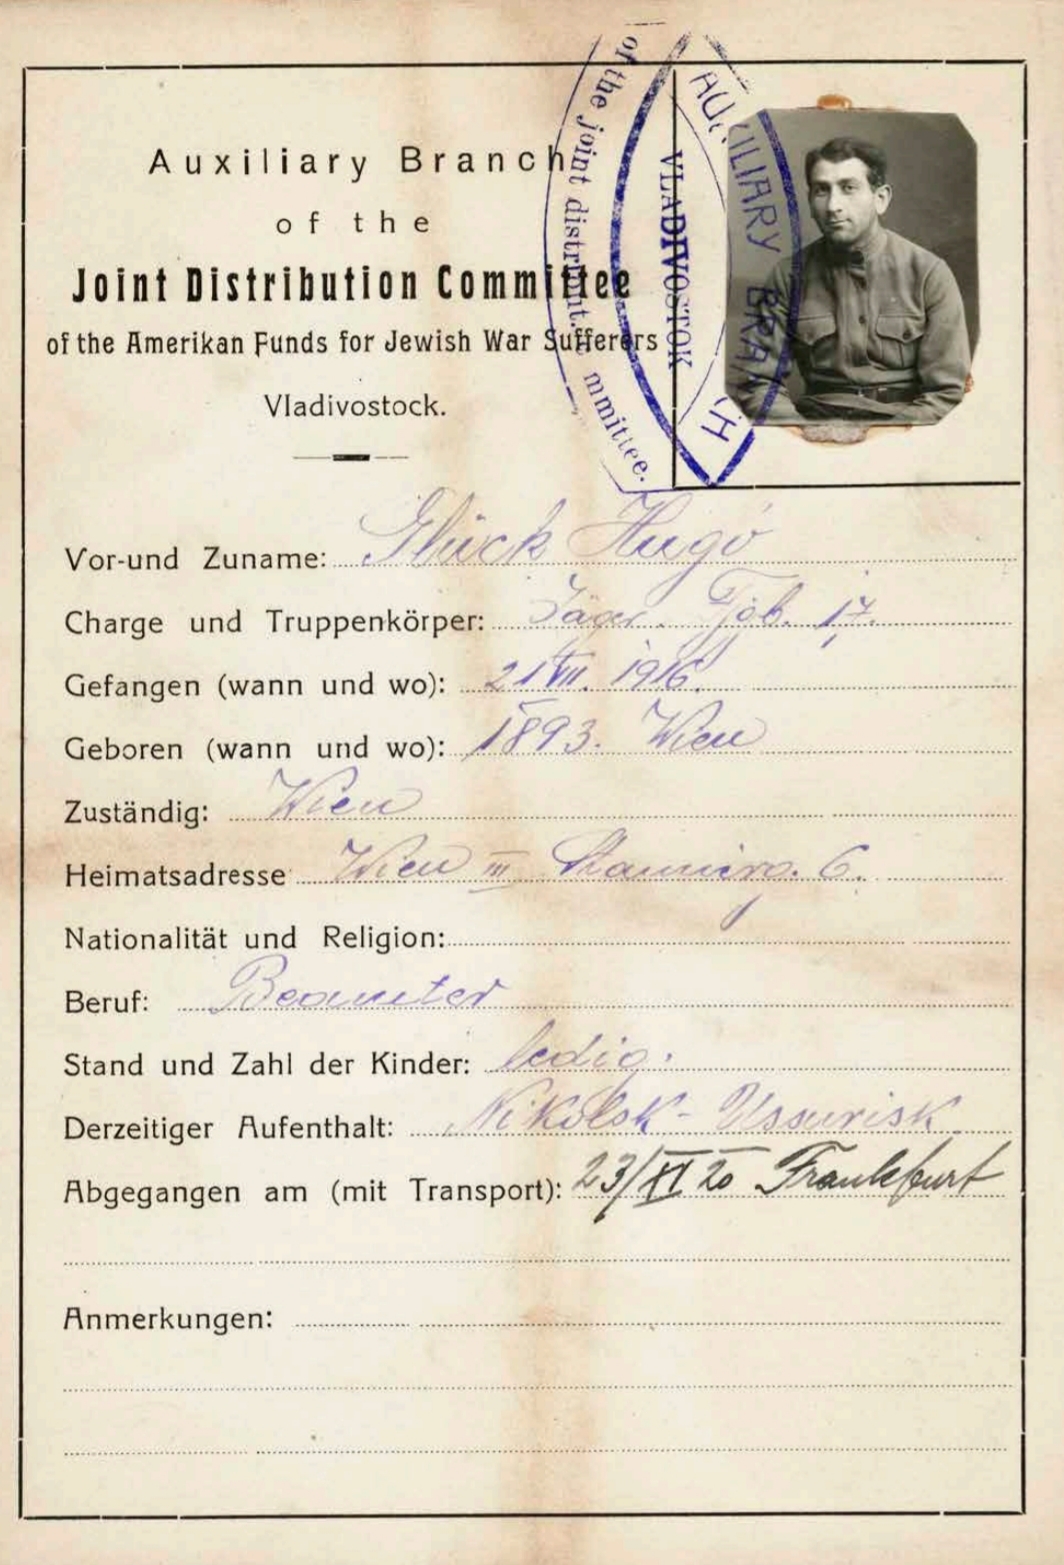 Auxiliary Branch
of the
Joint Distribution Committee
of the Amerikan Funds for Jewish War Sufferers
Vladivostock.
of the joint distribut. mmittee.
VLADIVOSTOK
AUXILIARY BRANCH
Vor-und Zuname: Glück Hugo
Charge und Truppenkörper: Jäger. Fjb. 17.
Gefangen (wann und wo): 21 VII. 1916.
Geboren (wann und wo): 1893. Wien
Zuständig: Wien
Heimatsadresse Wien III 6.
Nationalität und Religion:
Beruf: Beamter
Stand und Zahl der Kinder: ledig.
Derzeitiger Aufenthalt: Nikolsk-Ussurisk
Abgegangen am (mit Transport): 23/XI 20 Frankfurt
Anmerkungen: